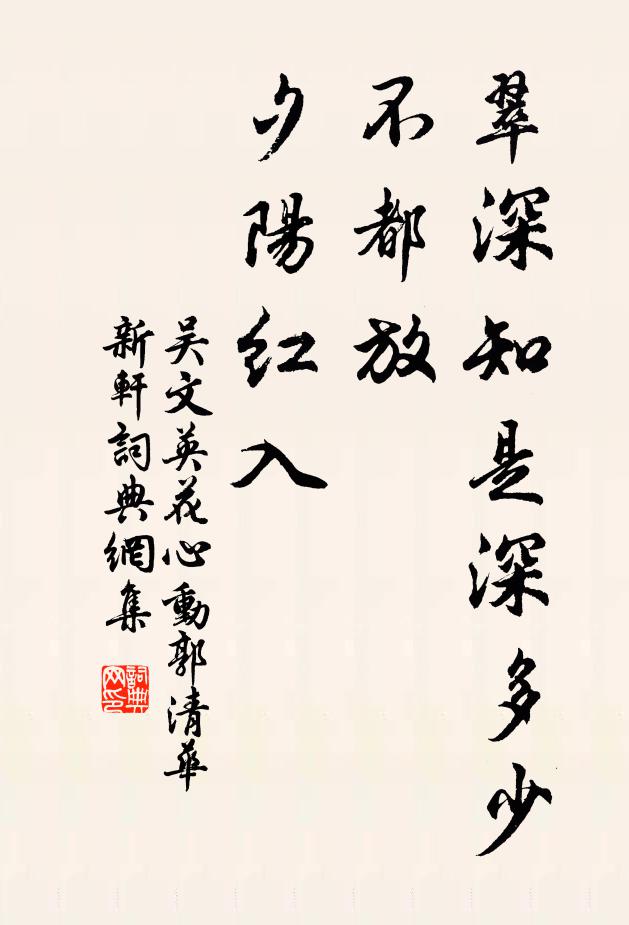 翠深知是深多少
不都放
夕陽紅入
吴文英花心動郭清華
新軒詞典網集
詞典网印